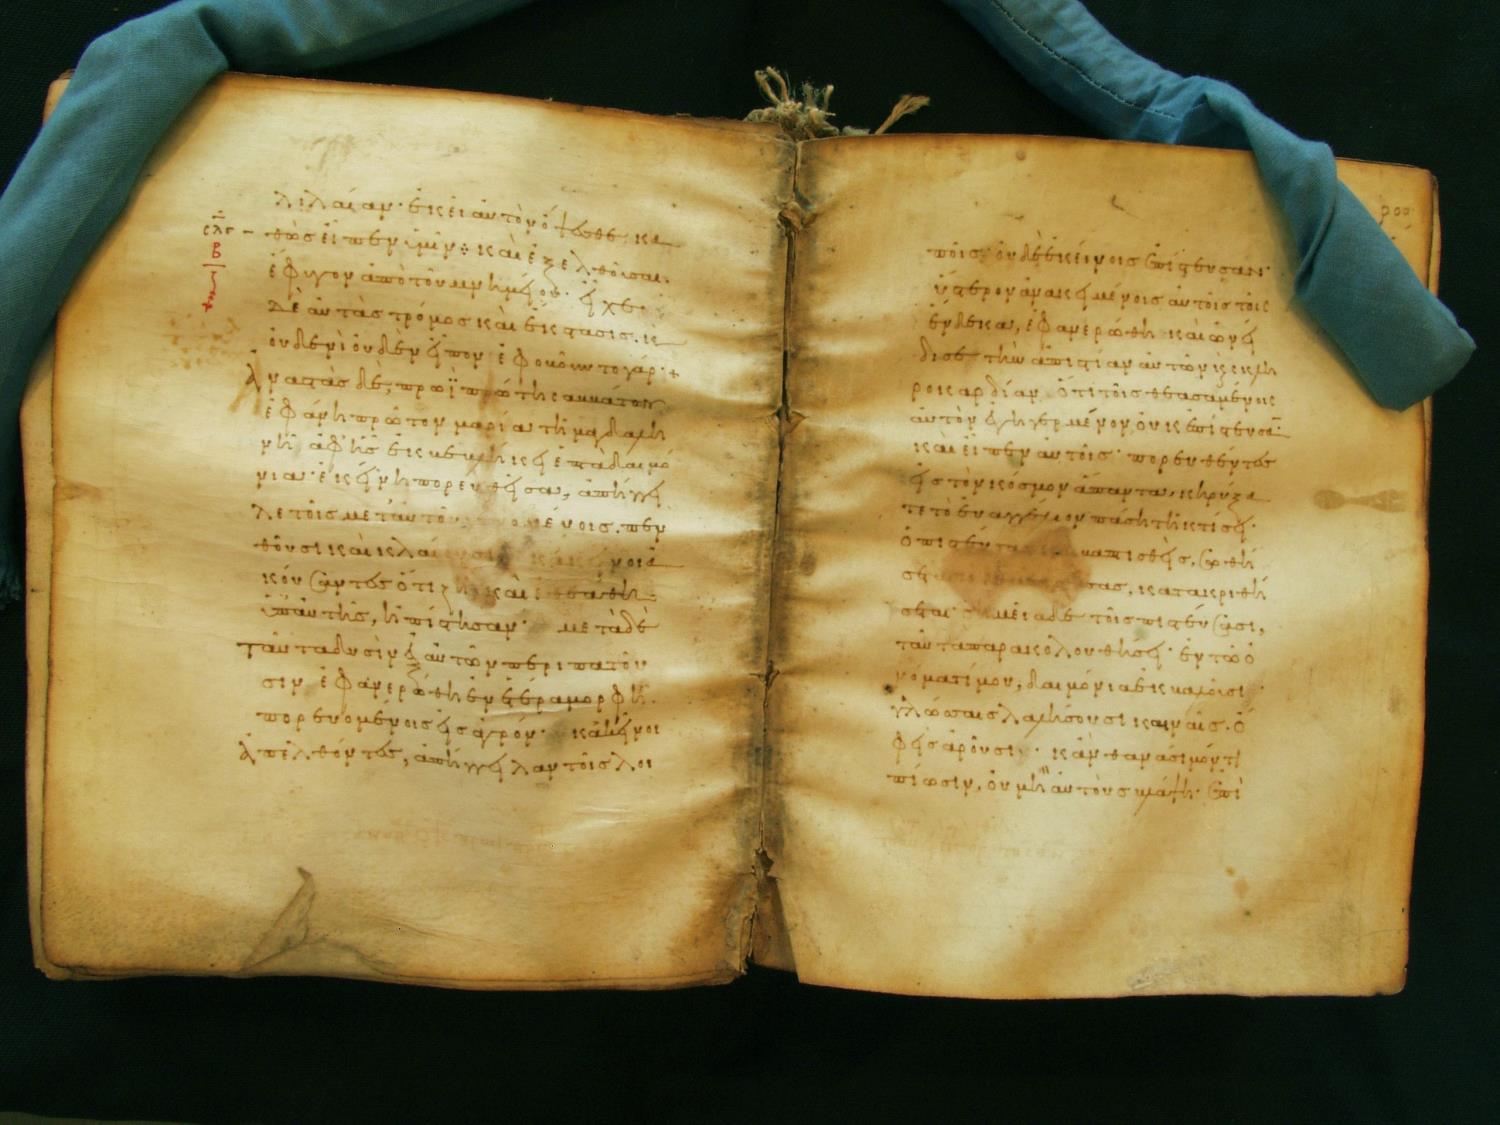 λιλαίαν· ἐκεῖ αὐτὸν ὄψεσθε, κα
θὼς εἶπεν ὑμῖν· καὶ ἐξελθοῦσαι
ἔφυγον ἀπὸ τοῦ μνημείου· εἶχε
δὲ αὐτὰς τρόμος καὶ ἔκστασις. κ
οὐδενὶ οὐδὲν εἶπον· ἐφοβοῦντο γάρ·+
Ἀναστὰς δὲ, πρωῒ πρώτη σαββάτου
ἐφάνη πρῶτον μαρία τῆ μαγδαλη
νῆ ἀφ' ἧς ἐκβεβλήκει ἑπτὰ δαιμό
νια· ἐκείνη πορευθεῖσα, ἀπήγγει
λε τοῖς μετ' αὐτοῦ γενομένοις. πεν
θοῦσι καὶ κλαίουσι· κἀκεῖνοι ἀ
κούσαντες ὅτι ζῆ καὶ ἐθεάθη
ὑπ' αὐτῆς, ἠπίστησαν· μετὰ δὲ
ταῦτα δυσὶν ἐξ αὐτῶν περιπατοῦ
σιν ἐφανερώθη ἐν ἑτέρα μορφῆ·
πορευομένοις εἰς ἀγρόν· κἀκεῖνοι
ἀπελθόντες, ἀπήγγειλαν τοῖς λοι
ποῖς· οὐδὲ ἐκείνοις ἐπίστευσαν·
ὕστερον ἀνακειμένοις αὐτοῖς τοῖς
ἕνδεκα, ἐφανερώθη· καὶ ὠνεί
δισε τὴν ἀπιστίαν αὐτῶν κ σκλη
ροκαρδίαν· ὅτι τοῖς θεασαμένοις
αὐτὸν ἐγηγερμένον οὐκ ἐπίστευσα
καὶ εἶπεν αὐτοῖς· πορευθέντες
εἰς τὸν κόσμον ἅπαντα, κηρύξα
τε τὸ εὐαγγέλιον πάση τῆ κτίσει·
ὁ πιστεύσας καὶ βαπτισθεὶς, σωθή
σεται· ὁ δὲ ἀπιστήσας, κατακριθή
σεται· σημεῖα δὲ τοῖς πιστεύσασι,
ταῦτα παρακολουθήσει· ἐν τῶ ὀ
νόματί μου, δαιμόνια ἐκβαλοῦσι·
γλώσσαις λαλήσουσι καιναῖς. ὄ
φεις ἀροῦσι· κἂν θανάσιμόν τι
πίωσιν, οὐ μὴ αὐτοὺς βλάψη· ἐπὶ